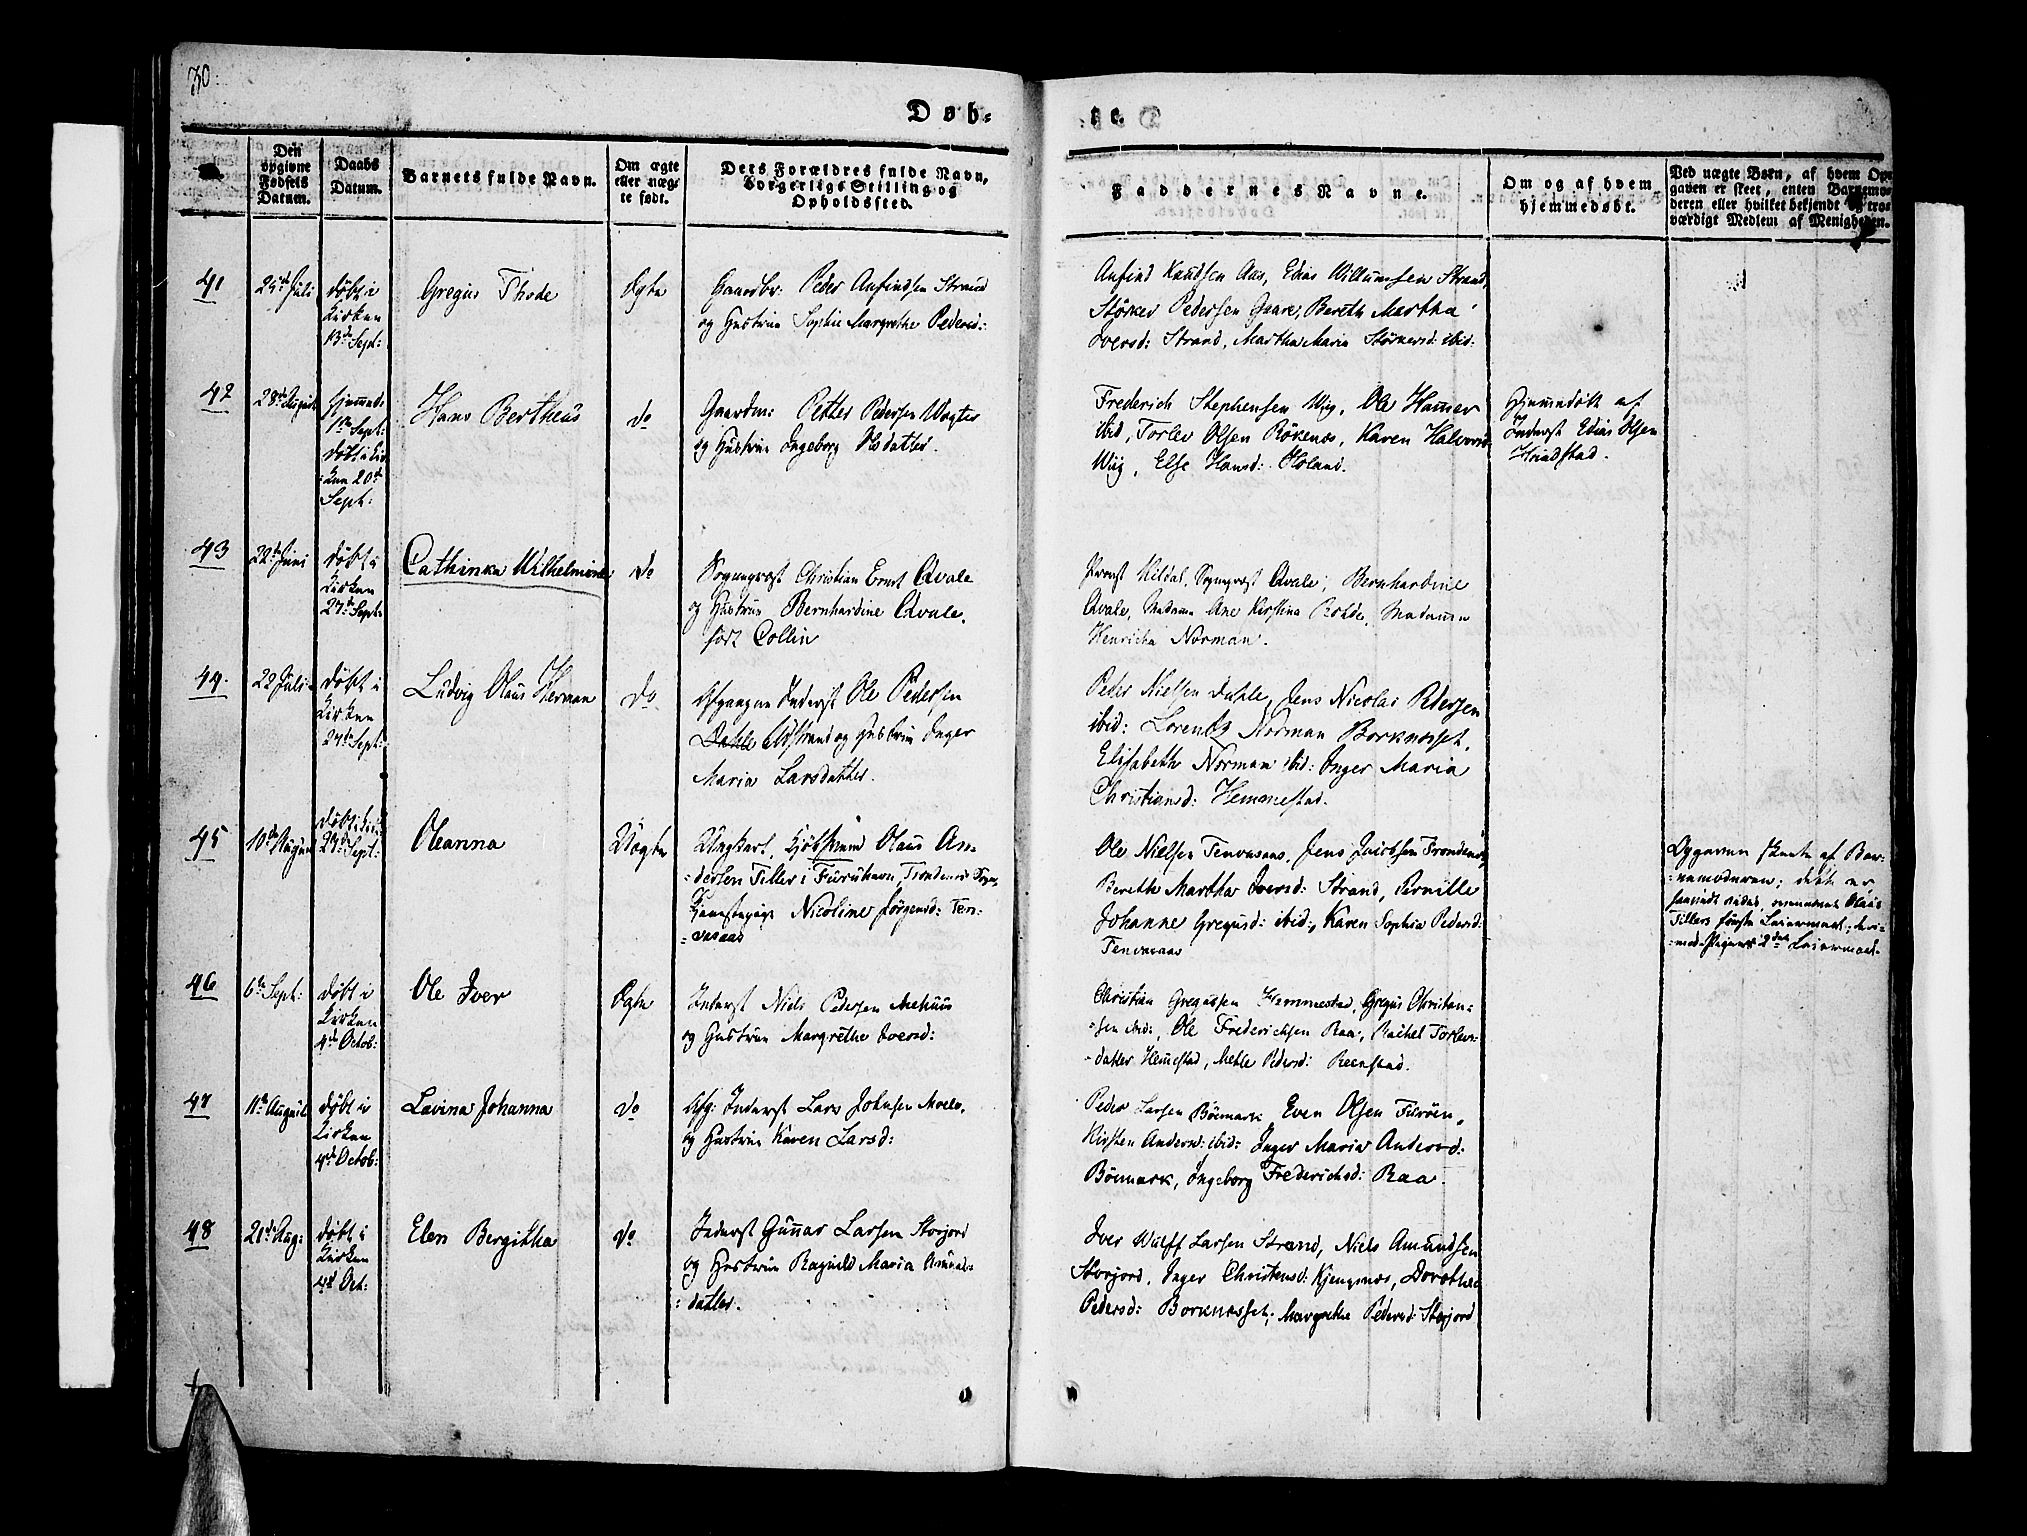 30.
Døb-
te.
Den opgivne Fødsels Datum.
Daabs Datum.
Barnets fulde Navn.
Om ægte eller uægte født.
Dets Forældres fulde Navn, Borgerlige Stilling og Opholdssted.
Faddernes Navne.
Om og af hvem hjemmedøbt.
Ved uægte Børn, af hvem Opgaven er skeet, enten Barnemoderen eller hvilket bekjendt og troværdigt Medlem af Menigheden.
41
Juli
døbt i
Kirken
13de Sept:
Gregus Thode
Ægte
Gaardbr: Peder Anfindsen Strand
og Hustrue Sophie Margrethe Pedersd:
Anfind Knudsen Aas, Edias Willumsen Strand,
Størker Pedersen Gaare, Bereth Martha
Iversd: Strand, Martha Maria Størkersd: ibid:
42
28de August
hjemmed:
1ste Sept:
døbt i Kir-
ken 20de
Sept:
Hans Bertheus
do
Gaardm: Petter Pedersen Vogter
og Hustrue Ingeborg Olsdatter.
Frederich Stephensen Wiig, Ole Hamer
ibid, Torlev Olsen Røkenes, Karen Halvorsd:
Wiig, Else Hansd: Holand.
Hjemmedøbt af
Inderst Edias Olsen
Hrindstad.
43
22de Juni
døbt i
Kirken
27de Sept:
Cathinka Wilhelmine
do
Sognepræst Christian Ernst Qvale
og Hustrue Bernhardine Qvale,
født Collin
Provst Kildal, Sognepræst Qvale, Bernhardine
Qvale, Madame Ane Kirstina Rohde, Madame
Henricha Norman.
44.
22 Juli
døbt i
Kirken
27de Sept:
Ludvig Olaus Herman
do
Afgangne Inderst Ole Pedersen
Dahle og Hustrue Inger
Maria Larsdatter.
Peder Nielsen Dahle, Jens Nicolai Pedersen
ibid: Lorents Norman Borknesset,
Elisabeth Norman ibid: Inger Maria
Christiansd: Hemmestad.
45
10de August
døbt i Kirk
Sept:
Oleanna
Uægte
Ungkarl, Olaus An-
dersen Tiller i Furuhavn, Trondenes Sogn,
Tjenestepige Nicoline Jørgensd: Ten-
vasaas
Ole Nielsen Tenvasaas, Jens Jacobsen Trondenes,
Bereth Martha Iversd: Strand, Pernille
Johanne Gregusd: ibid:, Karen Sophia Pedersd:
Tenvasaas
Opgaven skeete af Bar-
nemoderen; dette er
saavidt vides, ommeldte Olaus
Tillers første Leiermaal, deri-
mod Pigens 2det Leiermaal.
46
6te Sept:
døbt i
Kirken
4de Octob:
Ole Iver
Ægte
Inderst Niels Pedersen Melhuus
og Hustrue Margrethe Iversd:
Christian Gregussen Hemmestad, Gregus Christian-
sen ibid:, Ole Frederichsen Raa, Rachel Torlevs-
datter Hemestad, Mette Pedersd: Reenstad.
47
11te August
døbt i
Kirken
4de Octob:
Lavina Johanna
do
Afg: Inderst Lars Johnsen Moelv,
og Hustrue Karen Larsd:
Peder Larsen Bømark, Even Olsen Furøen,
Kirsten Andersd: ibid: Inger Maria Andersd:
Bømark, Ingeborg Frederichsd: Raa.
48
21de Aug:
døbt i
Kirken
4de Oct:
Elen Bergitha
do
Inderst Gunnar Larsen Storjord
og Hustrue Ragnild Maria Amunds-
datter.
Iver Wulff Larsen Strand, Niels Amundsen
Storjord, Inger Christensd: Kjengsnes, Dorothea
Pedersd: Borknesset, Margrethe Pedersd: Storjord